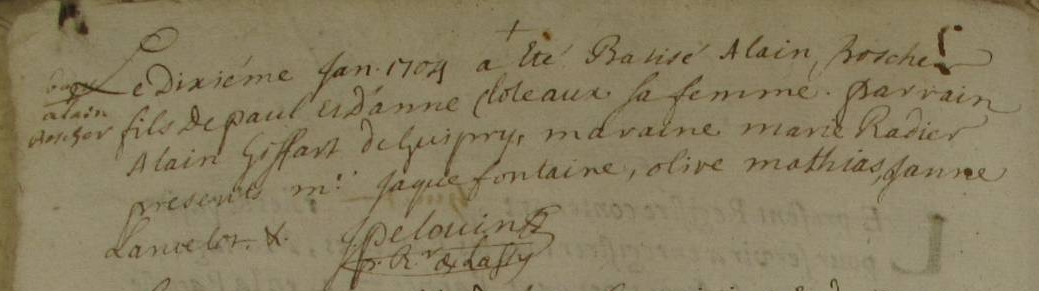 Le Dixiéme Jan. 1704 a Eté Batisé Alain Roscher
bap
alain
Roscher
fils de paul et d'anne Cloteaux sa femme. parrain
Alain Giffart de Guipry, maraine marie Radier
presents mr. Jaque fontaine, olive mathias, Janne
Lancelot. &.
Pelouin